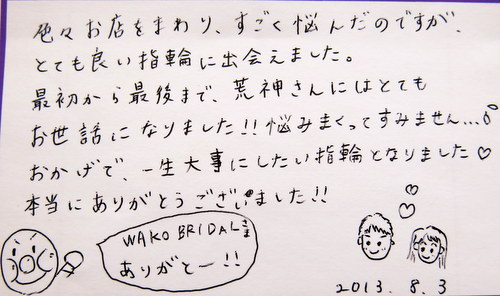 色々お店をまわり、すごく悩んだのですが、
とても良い指輪に出会えました。
最初から最後まで、荒神さんにはとても
お世話になりました!!悩みまくってすみません…
おかげで、一生大事にしたい指輪となりました♡
本当にありがとうございました!!
WAKO BRIDALさま
ありがとー!!
2013.8.3